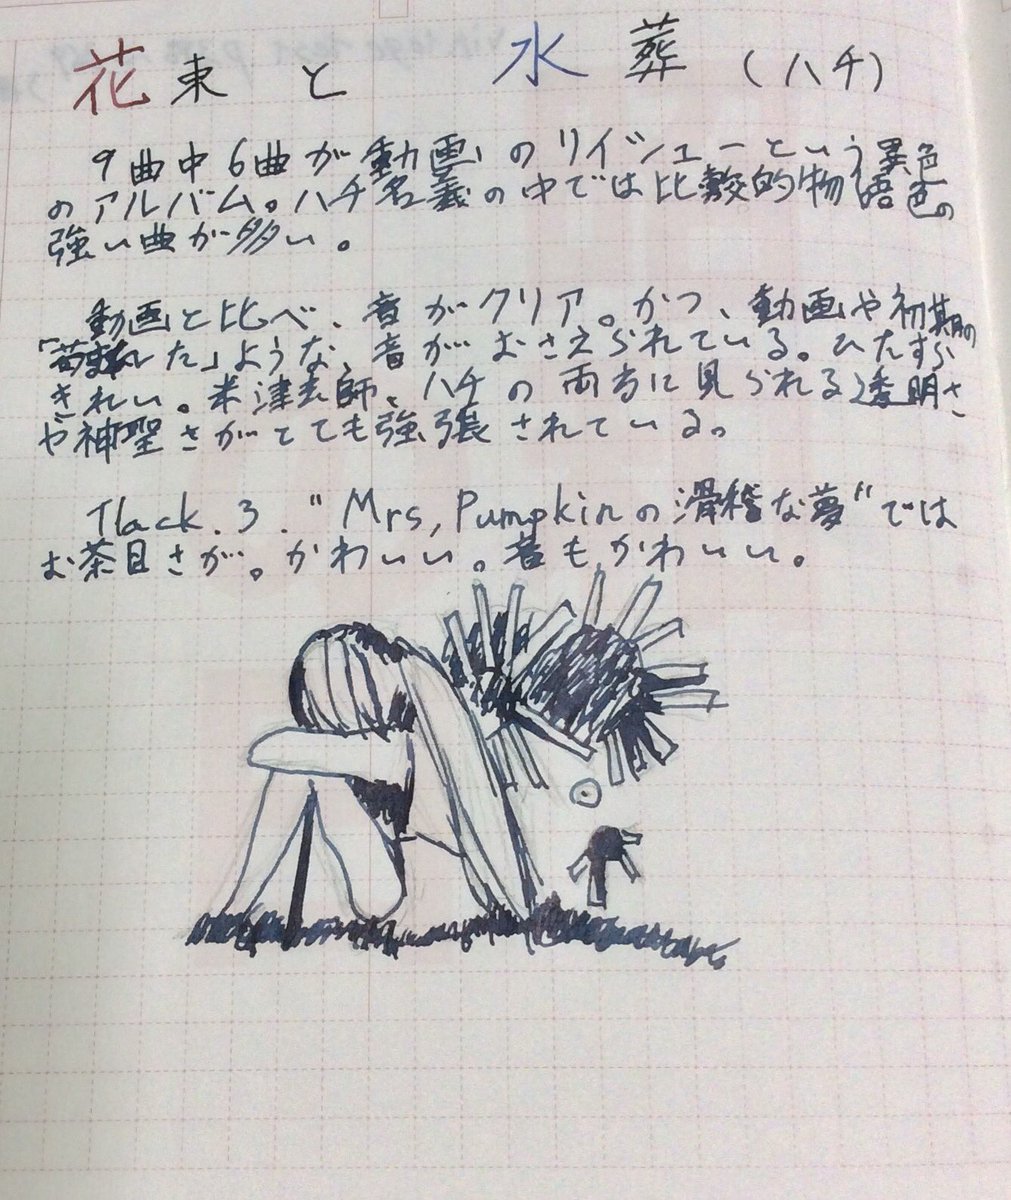 花束と水葬(ハチ)
9曲中6曲が動画のリイシューという異色
のアルバム。ハチ名義の中では比較的物語色の
強い曲が多い。
動画と比べ、音がクリア。かつ、動画や初期の
した」ような、音がおさえられている。ひたすら
きれい。米津玄師、ハチの両方に見られる透明さ
や神聖さがとても強張されている。
Tlack.3."Mrs,Pumpkinの滑稽な夢"では
お茶目さが。かわいい。音もかわいい。